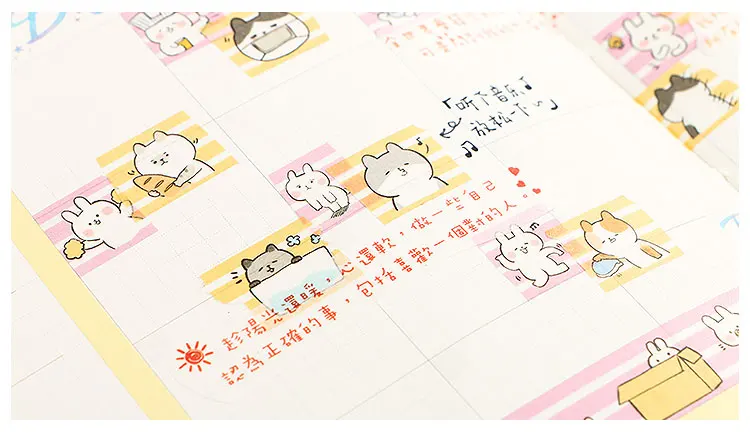 「听下音乐
放松一下」
趁陽光還暖，心還軟，做一些自己
認為正確的事，包括喜歡一個對的人。